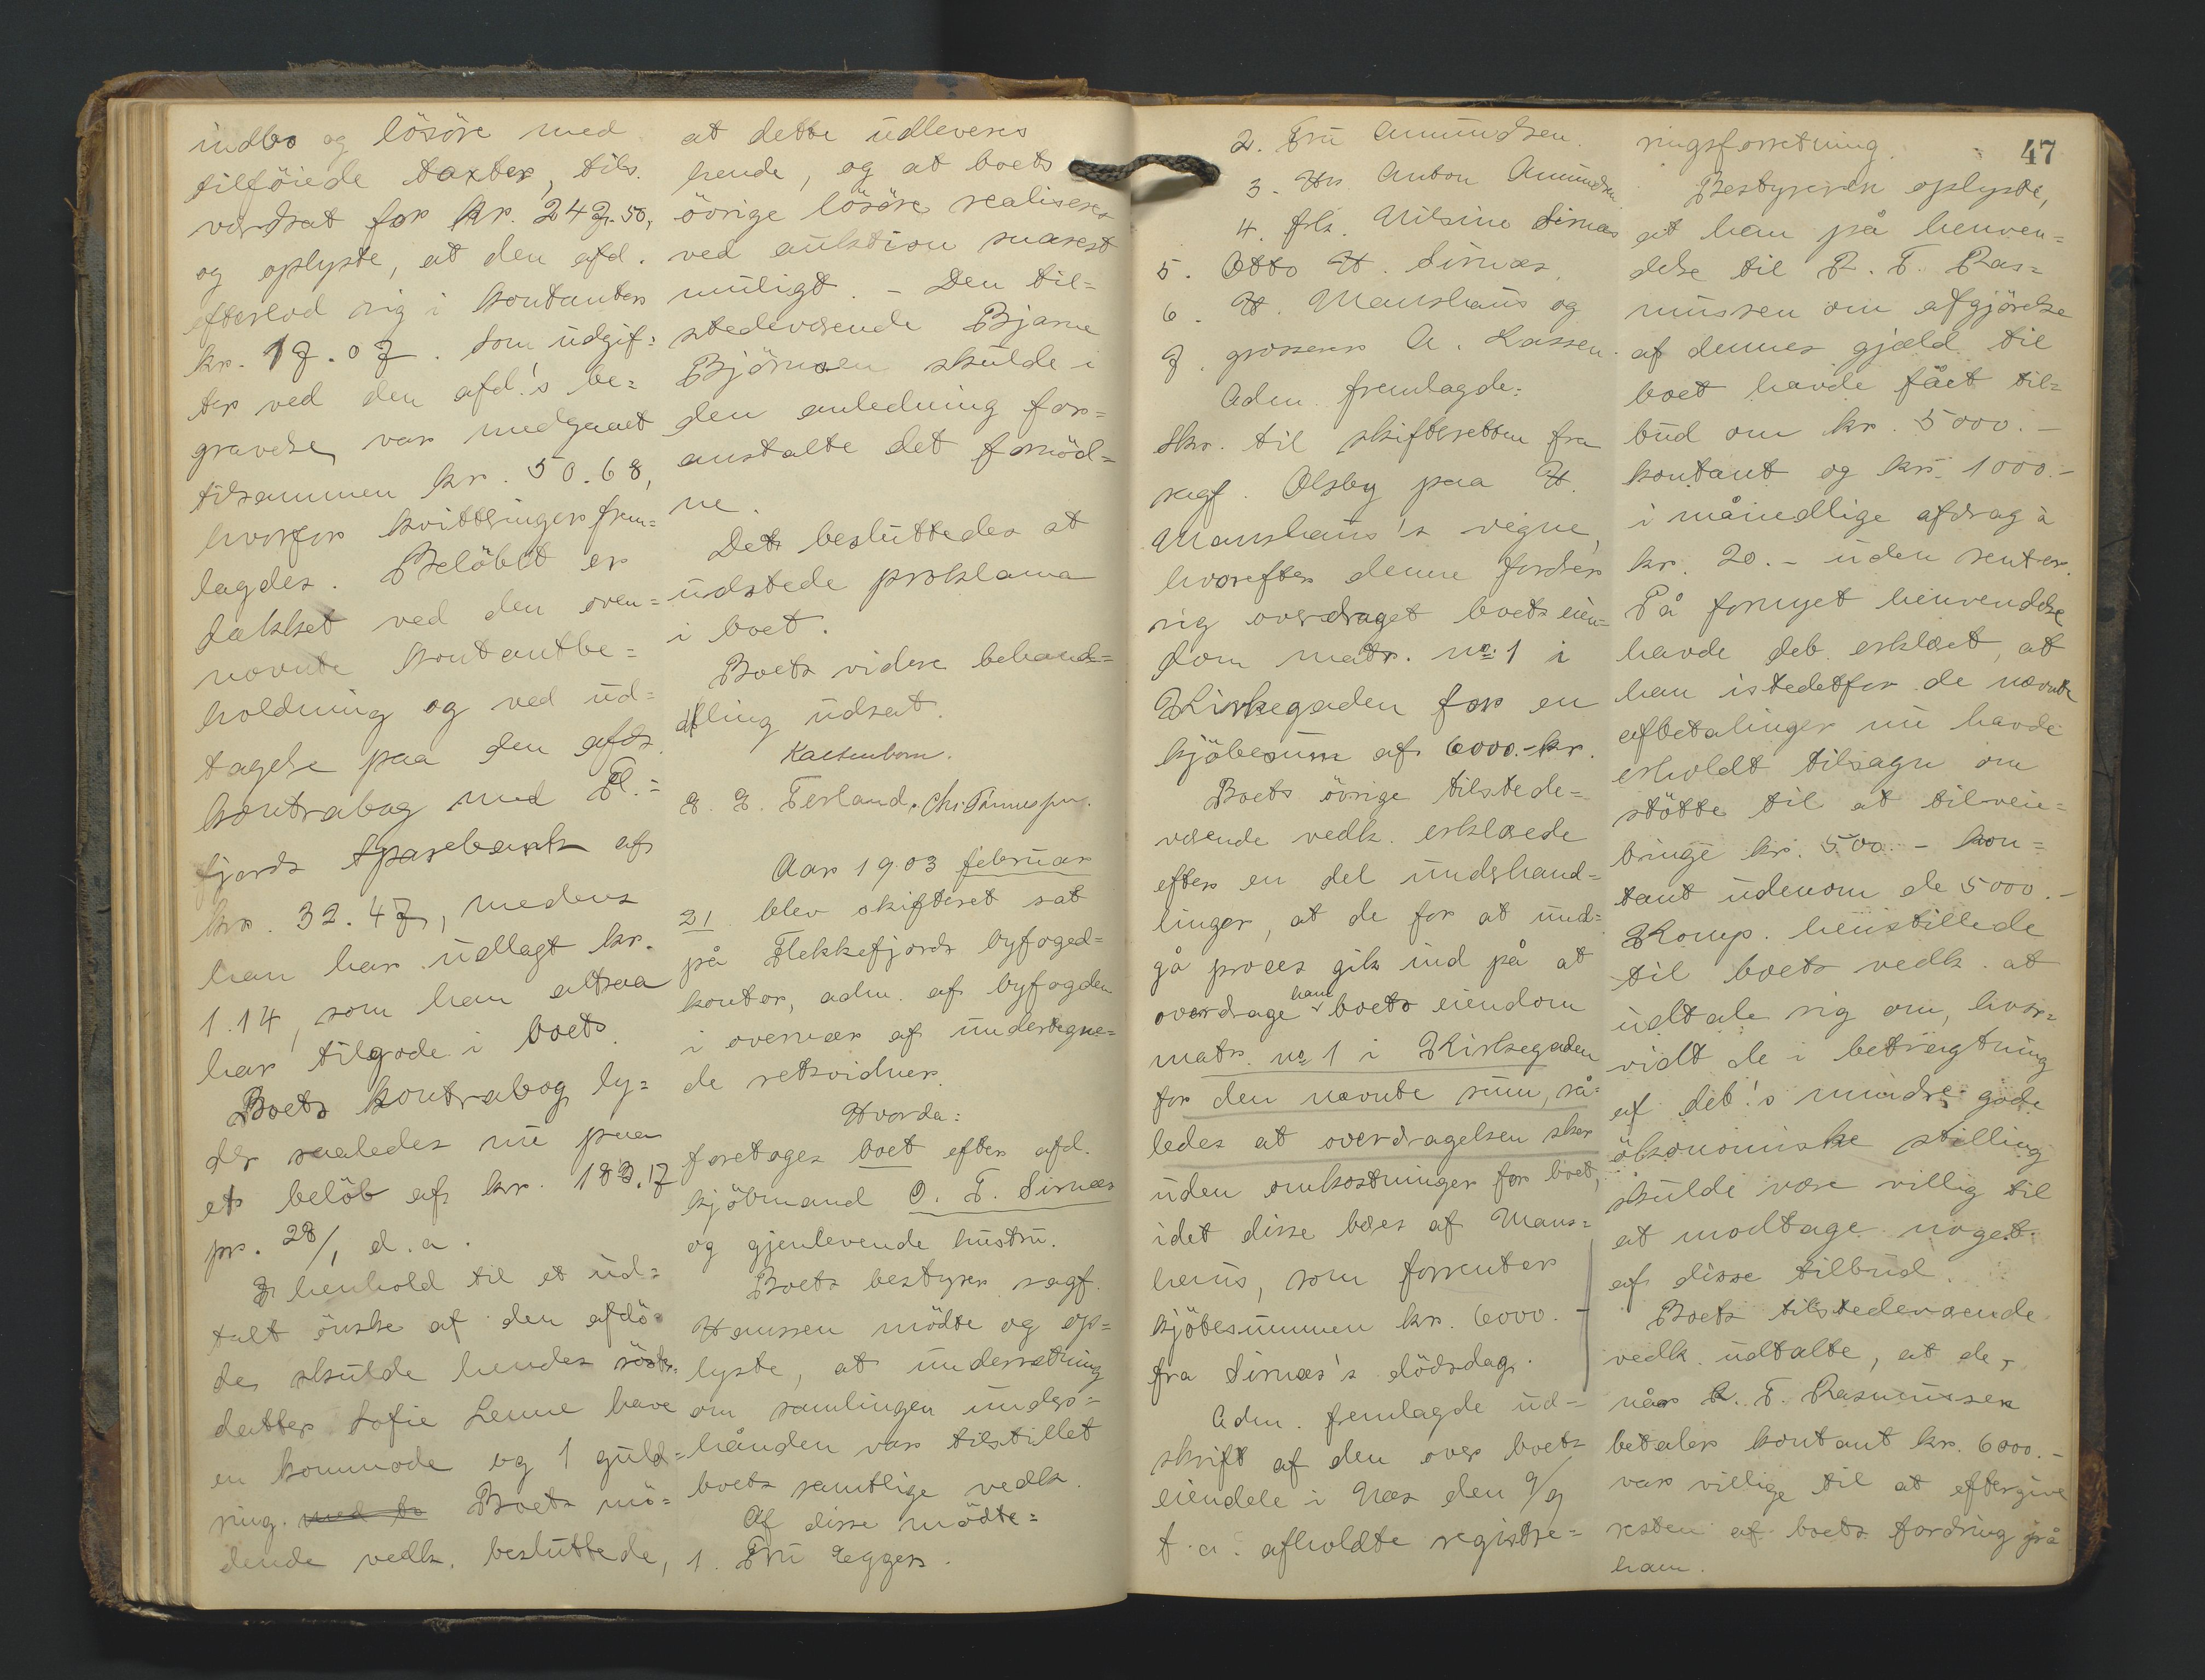 indbo og lösöre med
tilföiede taxter, tils.
vurdsat for kr. 247.50,
og oplyste, at den afd.
efterlod sig i kontanter
kr. 17.07. Som udgif=
ter ved den afd.'s be=
gravelse var medgaaet
tilsammen kr. 50.68,
hvorfor kvitteringer frem=
lagdes. Belöbet er
dækket ved den oven=
nævnte kontantbe=
holdning og ved ud=
tagelse paa den afd's
kontrabog med Fl.=
fjords Sparebank af
kr. 32.47, medens
han har udlagt kr.
1.14, som han altsaa
har tilgode i boet.
Boets kontrabog ly=
der saaledes nu paa
et belöb af kr. 183.17
pr. 28/1 d.a.
I henhold til et ud=
talt önske af den afdö=
de, skulde hendes söster=
datter Sofie Lenne have
en kommode og 1 guld=
ring. med to Boets mö=
dende vedk. besluttede,
at dette udleveres
hende, og at boets
övrige lösöre realiseres
ved auktion snarest
muligt. – Den til=
stedeværende Bjarne
Björnsen skulde i
den anledning for=
anstalte det fornöd=
ne.
Det besluttedes at
udstede proklama
i boet.
Boets videre behand=
ling udsat.
Kaltenborn.
E. E. Terland.
Aar 1903 februar
21 blev skifteret sat
på Flekkefjords byfoged=
kontor, adm. af byfogden
i overvær af undertegne=
de retsvidner.
Hvorda:
foretoges boet efter afd.
kjöbmand O. T. Sirnæs
og gjenlevende hustru.
Boets bestyrer sagf.
Hanssen mödte og op=
lyste, at underretning
om samlingen under=
hånden var tilstillet
boets samtlige vedk.
Af disse mödte:
1. Fru Egger.
2. Fru Amundsen.
3. Hr. Anton Amundsen
4. frk. Nilsine Sirnæs
5. Otto H. Sirnæs.
6. H. Manshaus og
7. grosserer A. Lassen.
Adm. fremlagde:
Skr. til skifteretten fra
sagf. Olsby paa H.
Manshaus's vegne,
hvorefter denne fordrer
sig overdraget boets eien=
dom matr. No. 1 i
Kirkegaden for en
kjöbesum af 6000.- kr.
Boets övrige tilstede=
værende vedk. erklærede
efter en del underhand=
linger, at de for at und=
gå proces gik ind på at
overdrage ham boets eiendom
matr. no 1 i Kirkegaden
for den nævnte sum, så=
ledes at overdragelsen sker
uden omkostninger for boet,
idet disse bæres af Mans=
haus, som forrenter
kjöbesummen kr. 6000.-
fra Sirnæs's dödsdag.
Adm. fremlagde ud=
skrift af den over boets
eiendele i Næs den 9/9
f.a. afholdte registre=
47
ringsforretning.
Bestyreren oplyste,
at han på henven=
delse til R. T. Ras=
mussen om afgjörelse
af dennes gjæld til
boet havde fået til=
bud om kr. 5000.-
kontant og kr. 1000.-
i månedlige afdrag à
kr. 20.- uden renter.
På fornyet henvendelse
havde deb. erklæret, at
han istedetfor de nævnte
afbetalinger nu havde
erholdt tilsagn om
stötte til at tilveie=
bringe kr. 500.- kon=
tant udenom de 5000.-
Komp. henstillede
til boets vedk. at
udtale sig om, hvor=
vidt de i betragtning
af deb.'s mindre gode
ökonomiske stilling
skulde være villig til
at modtage noget
af disse tilbud.
Boets tilstedeværende
vedk. udtalte, at de,
når R. T. Rasmussen
betaler kontant kr. 6000.-
var villige til at eftergive
resten af boets fordring på
ham.